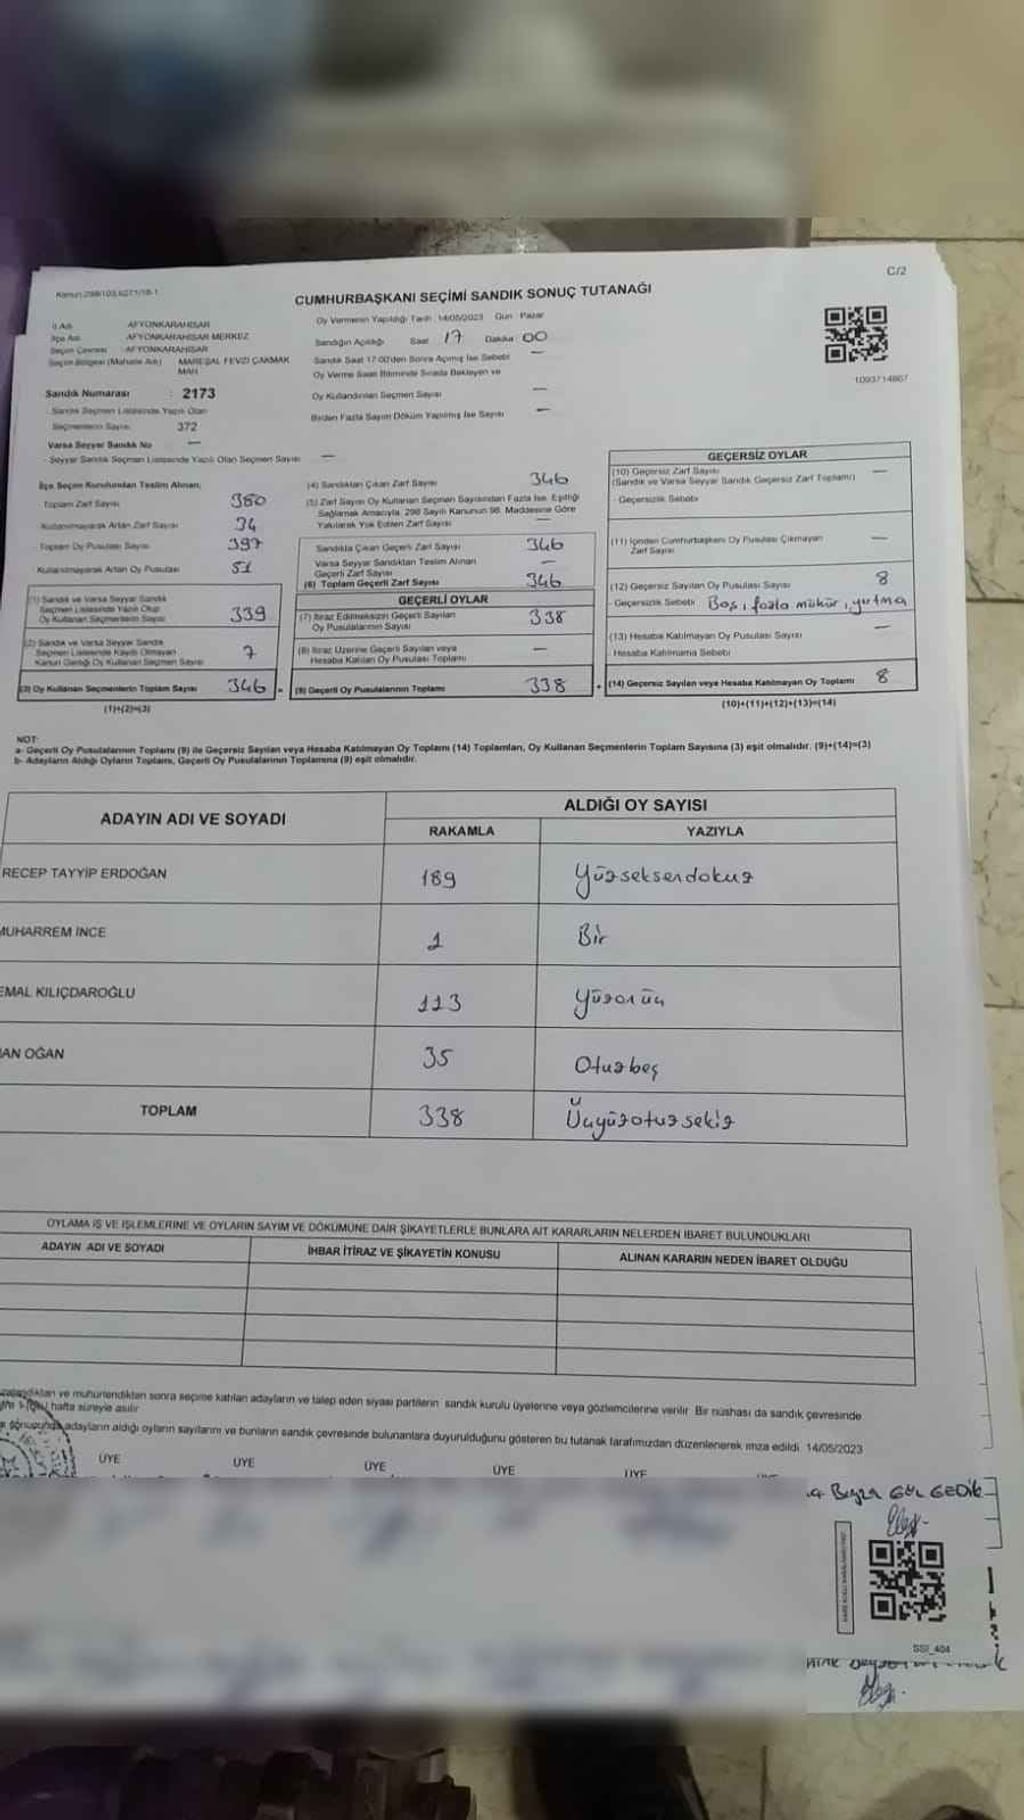 C/2
CUMHURBAŞKANI SEÇİMİ SANDIK SONUÇ TUTANAĞI
İl Adı AFYONKARAHİSAR
İlçe Adı AFYONKARAHİSAR MERKEZ
Seçim Çevresi AFYONKARAHİSAR
Seçim Bölgesi (Mahalle Adı) MAREŞAL FEVZİ ÇAKMAK
MAH
Sandık Numarası : 2173
Sandık Seçmen Listesinde Yazılı Olan
Seçmenlerin Sayısı 372
Varsa Seyyar Sandık No —
- Seyyar Sandık Seçmen Listesinde Yazılı Olan Seçmen Sayısı —
Oy Vermenin Yapıldığı Tarih : 14/05/2023 Gün : Pazar
Sandığın Açıldığı Saat 17 Dakika 00
Sandık Saat 17:00'den Sonra Açılmış İse Sebebi —
Oy Verme Saati Bitiminde Sırada Bekleyen ve
Oy Kullandırılan Seçmen Sayısı —
Birden Fazla Sayım Döküm Yapılmış İse Sayısı —
1093714867
İlçe Seçim Kurulundan Teslim Alınan;
Toplam Zarf Sayısı 380
Kullanılmayarak Artan Zarf Sayısı 34
Toplam Oy Pusulası Sayısı 397
Kullanılmayarak Artan Oy Pusulası 51
(1) Sandık ve Varsa Seyyar Sandık
Seçmen Listesinde Yazılı Olup
Oy Kullanan Seçmenlerin Sayısı 339
(2) Sandık ve Varsa Seyyar Sandık
Seçmen Listesinde Kayıtlı Olmayan
Kanun Gereği Oy Kullanan Seçmen Sayısı 7
(3) Oy Kullanan Seçmenlerin Toplam Sayısı 346
(1)+(2)=(3)
(4) Sandıktan Çıkan Zarf Sayısı 346
(5) Zarf Sayısı Oy Kullanan Seçmen Sayısından Fazla İse, Eşitliği
Sağlamak Amacıyla, 298 Sayılı Kanunun 98. Maddesine Göre
Yakılarak Yok Edilen Zarf Sayısı —
Sandıkta Çıkan Geçerli Zarf Sayısı 346
Varsa Seyyar Sandıktan Teslim Alınan
Geçerli Zarf Sayısı —
(6) Toplam Geçerli Zarf Sayısı 346
GEÇERLİ OYLAR
(7) İtiraz Edilmeksizin Geçerli Sayılan
Oy Pusulalarının Sayısı 338
(8) İtiraz Üzerine Geçerli Sayılan veya
Hesaba Katılan Oy Pusulası Toplamı —
(9) Geçerli Oy Pusulalarının Toplamı 338
GEÇERSİZ OYLAR
(10) Geçersiz Zarf Sayısı —
(Sandık ve Varsa Seyyar Sandık Geçersiz Zarf Toplamı)
- Geçersizlik Sebebi
(11) İçinden Cumhurbaşkanı Oy Pusulası Çıkmayan
Zarf Sayısı —
(12) Geçersiz Sayılan Oy Pusulası Sayısı 8
- Geçersizlik Sebebi Boş, fazla mühür, yırtma
(13) Hesaba Katılmayan Oy Pusulası Sayısı —
Hesaba Katılmama Sebebi
(14) Geçersiz Sayılan veya Hesaba Katılmayan Oy Toplamı 8
(10)+(11)+(12)+(13)=(14)
NOT:
a- Geçerli Oy Pusulalarının Toplamı (9) ile Geçersiz Sayılan veya Hesaba Katılmayan Oy Toplamı (14) Toplamları, Oy Kullanan Seçmenlerin Toplam Sayısına (3) eşit olmalıdır. (9)+(14)=(3)
b- Adayların Aldığı Oyların Toplamı, Geçerli Oy Pusulalarının Toplamına (9) eşit olmalıdır.
ADAYIN ADI VE SOYADI
ALDIĞI OY SAYISI
RAKAMLA YAZIYLA
RECEP TAYYİP ERDOĞAN 189 Yüzseksendokuz
MUHARREM İNCE 1 Bir
EMAL KILIÇDAROĞLU 113 Yüzonüç
AN OĞAN 35 Otuzbeş
TOPLAM 338 Üçyüzotuzsekiz
OYLAMA İŞ VE İŞLEMLERİNE VE OYLARIN SAYIM VE DÖKÜMÜNE DAİR ŞİKAYETLERLE BUNLARA AİT KARARLARIN NELERDEN İBARET BULUNDUKLARI
ADAYIN ADI VE SOYADI İHBAR İTİRAZ VE ŞİKAYETİN KONUSU ALINAN KARARIN NEDEN İBARET OLDUĞU
ve mühürlendikten sonra seçime katılan adayların ve talep eden siyasi partilerin sandık kurulu üyelerine veya gözlemcilerine verilir. Bir nüshası da sandık çevresinde
hafta süreyle asılır.
adayların aldığı oyların sayılarını ve bunların sandık çevresinde bulunanlara duyurulduğunu gösteren bu tutanak tarafımızdan düzenlenerek imza edildi. 14/05/2023
ÜYE ÜYE ÜYE ÜYE ÜYE
Beyza GÜL GEDİK
SSI_404